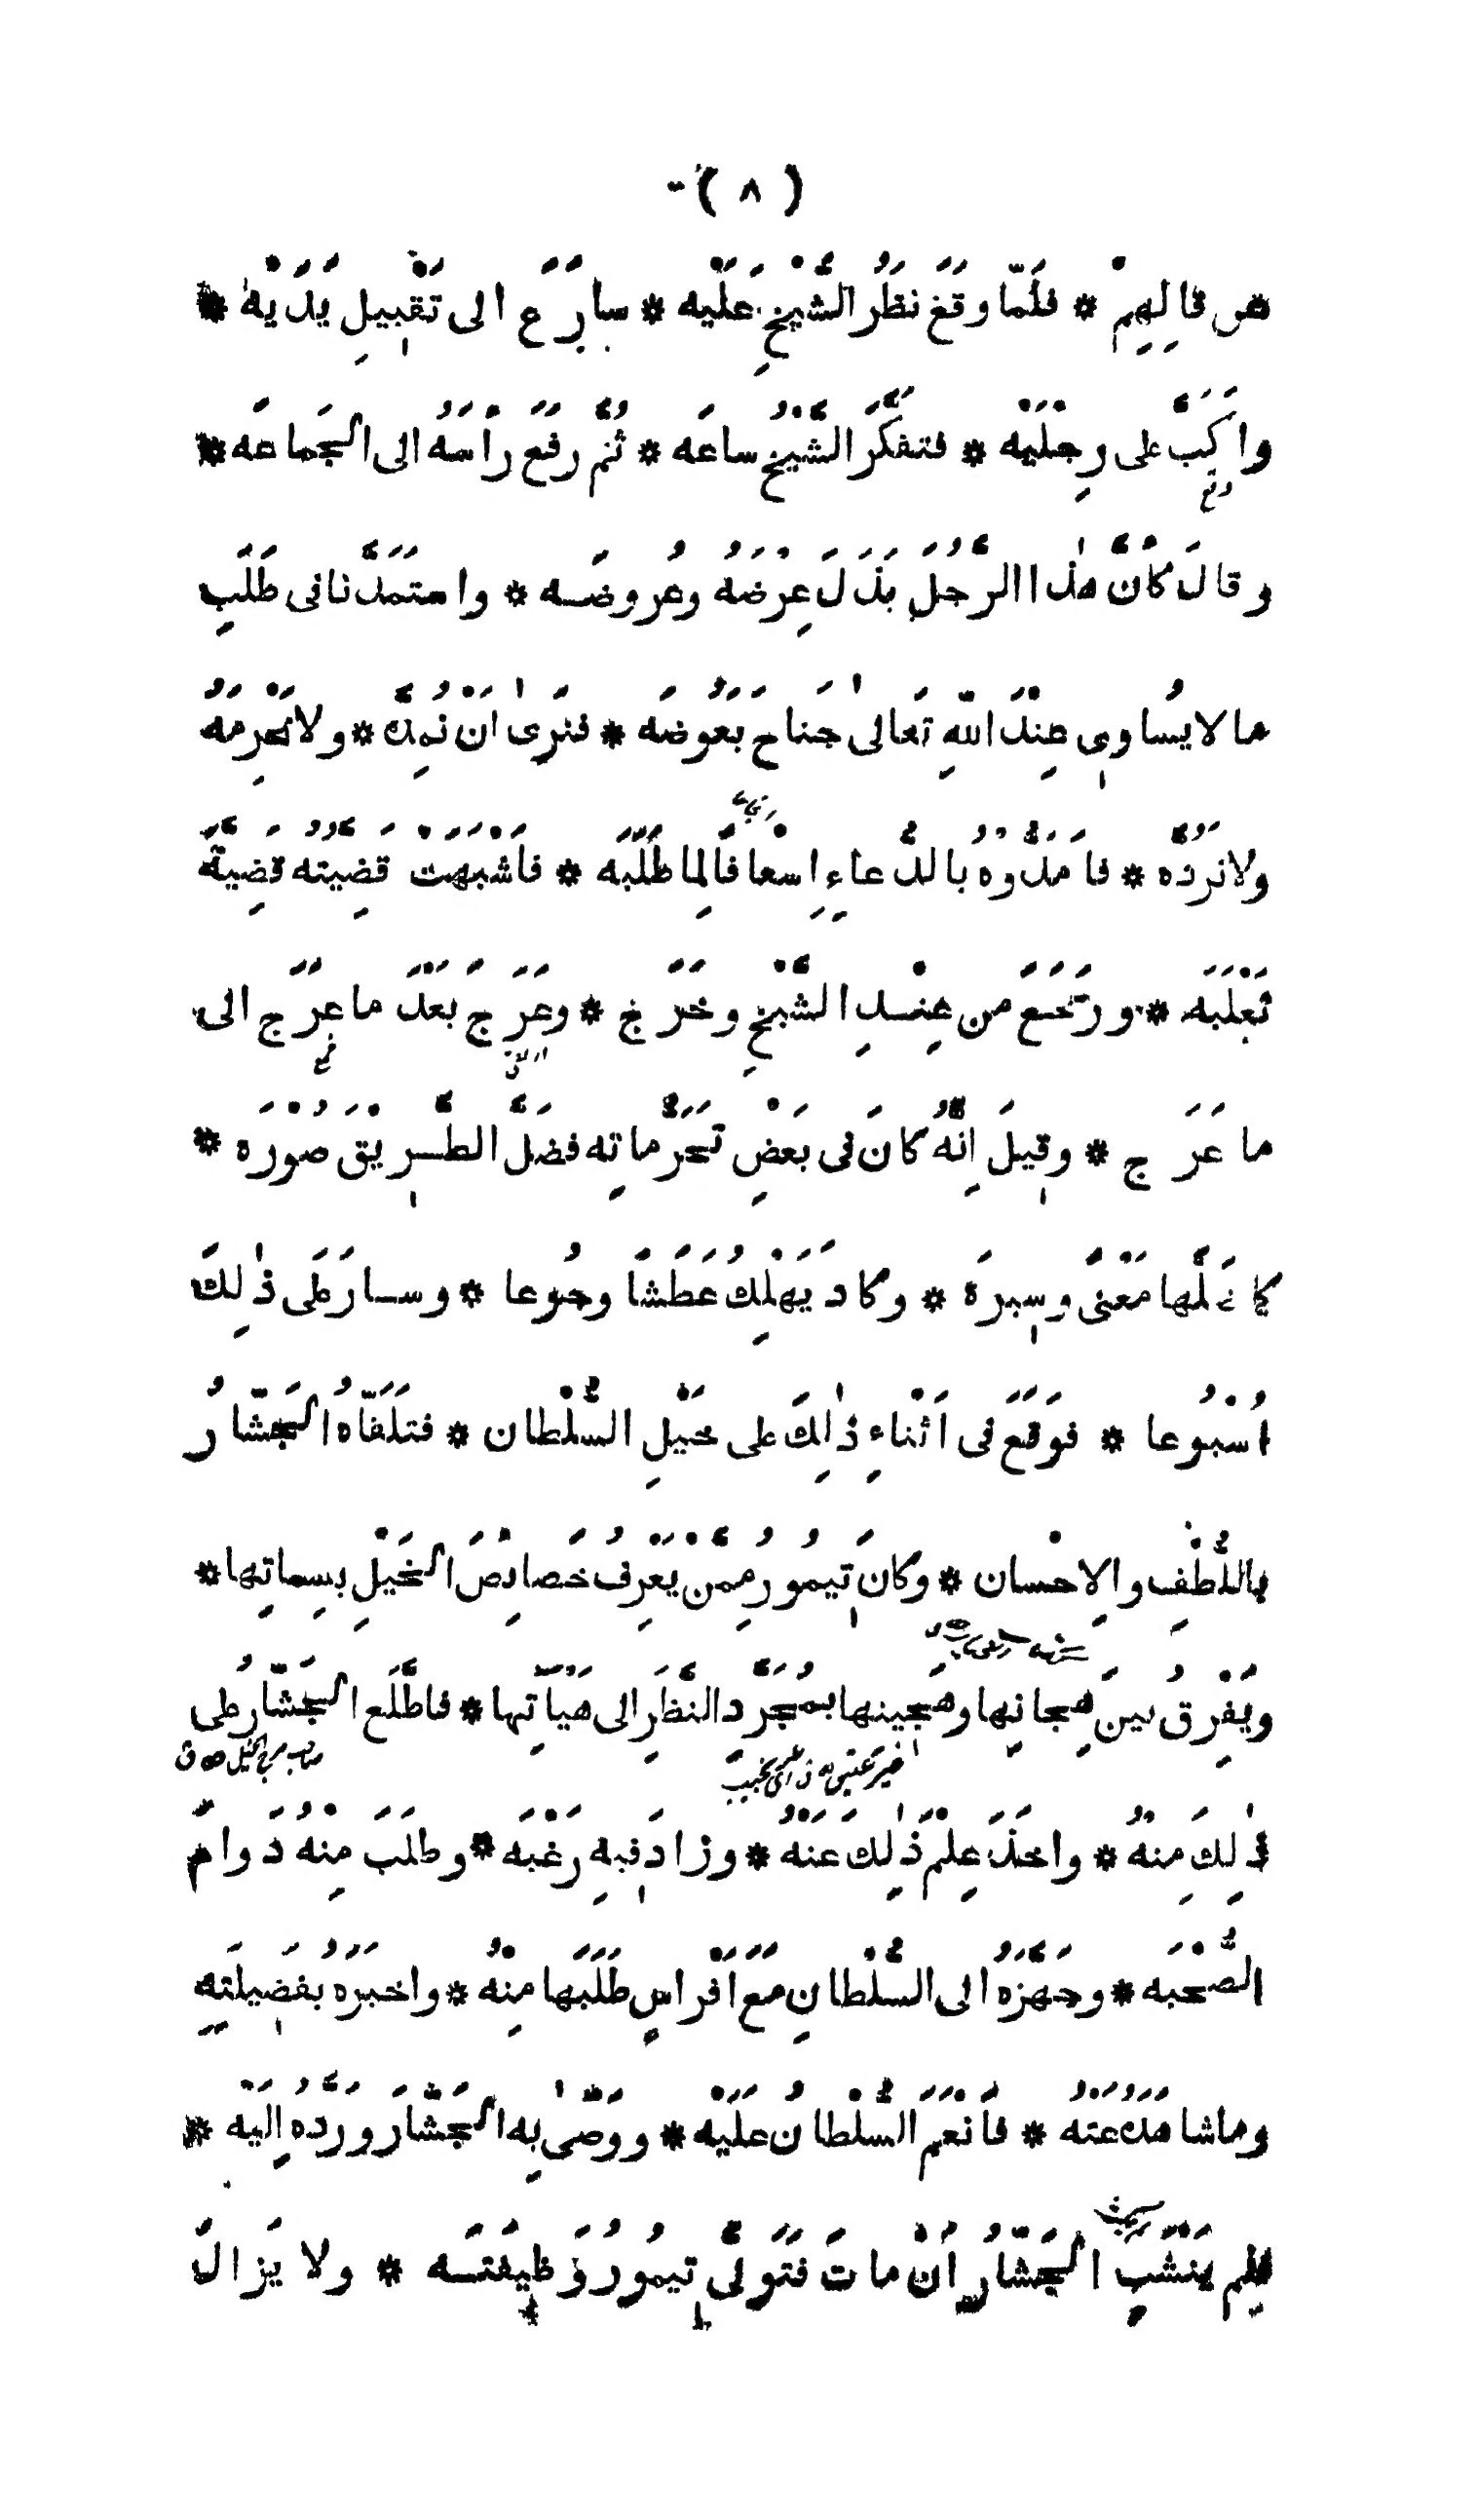 (٨)
من قالِهِمْ * فلَمّا وقَعَ نظَرُ الشَّيْخِ عَلَيْه * سارَعَ الى تَقْبِيلِ يَدَيْهِ *
واكَبَّ على رِجْلَيْه * فتفكَّرَ الشَّيْخُ ساعَه * ثُمَّ رفَعَ رأسَهُ الى الجَماعَه *
وقالَ كانَّ هٰذا الرَّجُلَ بَذَلَ عِرْضَهُ وعُروضَه * واستَمَدَّنا فى طَلَبِ
ما لا يُساوِى عِنْدَ اللّٰهِ تَعالىٰ جَناحَ بَعُوضَه * فنَرىٰ اَنْ نُمِدَّه * ولا نَحْرِمَهُ
ولا نرُدَّه * فاَمَدُّوْهُ بالدُّعاءِ اِسْعافًا لِما طَلَبَه * فاَشْبَهَتْ قَضِيَّتُه قَضِيَّةَ
ثَعْلَبَه * ورجَعَ من عِنْدِ الشَّيْخِ وخَرَج * وعَرَجَ بَعْدَ ما عرَجَ الى
ما عَرَج * وقِيلَ اِنَّهُ كانَ فى بَعْضِ تَحَرُّماتِه فضَلَّ الطَّرِيْقَ صُوْرَه *
كما ضَلَّها مَعْنىً وسِيرَه * وكادَ يَهْلِكُ عَطَشًا وجُوعا * وسارَ على ذٰلِكَ
اُسْبُوعا * فوَقَعَ فى اَثْناءِ ذٰلِكَ على خَيْلِ السُّلْطان * فتَلَقّاهُ الجَشّارُ
باللُّطْفِ والاِحْسان * وكانَ تِيمُورُ مِمَّنْ يَعْرِفُ خَصائِصَ الخَيْلِ بِسِماتِها *
ويَفْرِقُ بينَ هِجانِها وهَجِينِها بمُجَرَّدِ النَّظَرِ الى هَيْآتِها * فاطَّلَع الجَشّارُ على
ذٰلِكَ مِنْهُ * واخَذَ عِلْمَ ذٰلِكَ عَنْهُ * وزادَ فيهِ رَغْبَه * وطلَبَ مِنْهُ دَوامَ
الصُّحْبَه * وجَهَّزَهُ الى السُّلْطانِ مَعَ اَفْراسٍ طَلَبَها مِنْهُ * واخبَرَهُ بفَضِيلَتِه
وما شاهَدَهُ عَنْهُ * فَاَنْعَمَ السُّلْطانُ عَلَيْه * ووَصّىٰ بِه الجَشّارَ ورَدَّهُ اِلَيْه *
فلم يَنْشَبِ الجَشّارُ اَنْ ماتَ فَتَوَلَّى تِيمُورُ وَظِيفَتَه * ولا يَزالُ